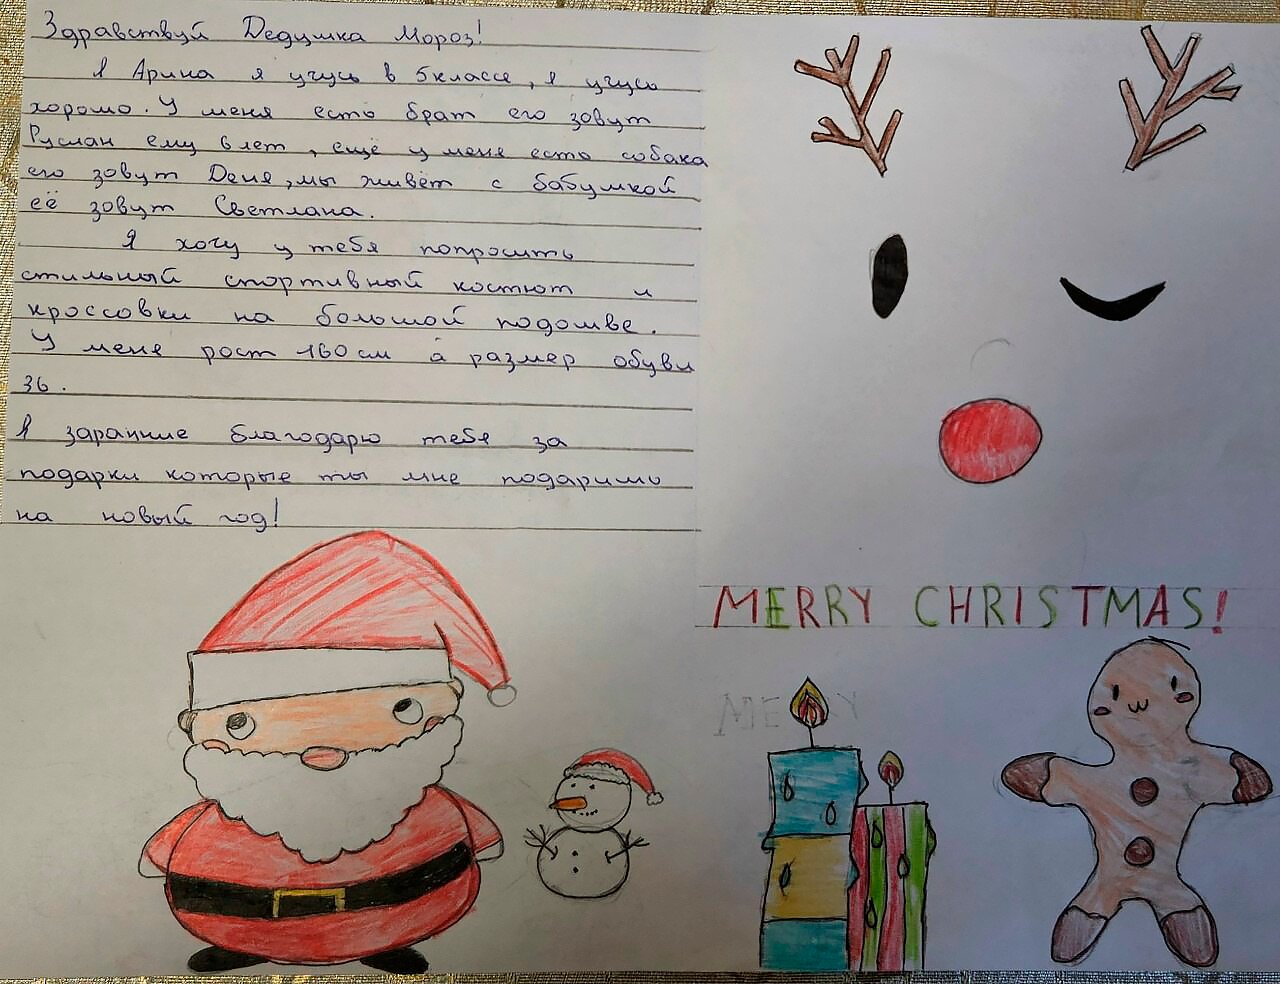 Здравствуй Дедушка Мороз!
Я Арина я учусь в 5классе, я учусь
хорошо. У меня есть брат его зовут
Руслан ему 8 лет, ещё у меня есть собака
его зовут Деня, мы живём с бабушкой
её зовут Светлана.
Я хочу у тебя попросить
стильный спортивный костюм и
кроссовки на большой подошве.
У меня рост 160 см а размер обуви
36.
Я заранние благодарю тебя за
подарки которые ты мне подаришь
на новый год!
MERRY CHRISTMAS!
MERRY